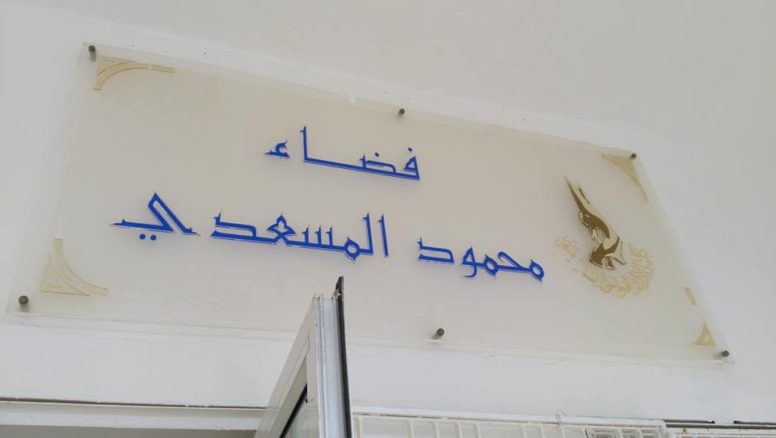 فضاء
محمود المسعدي